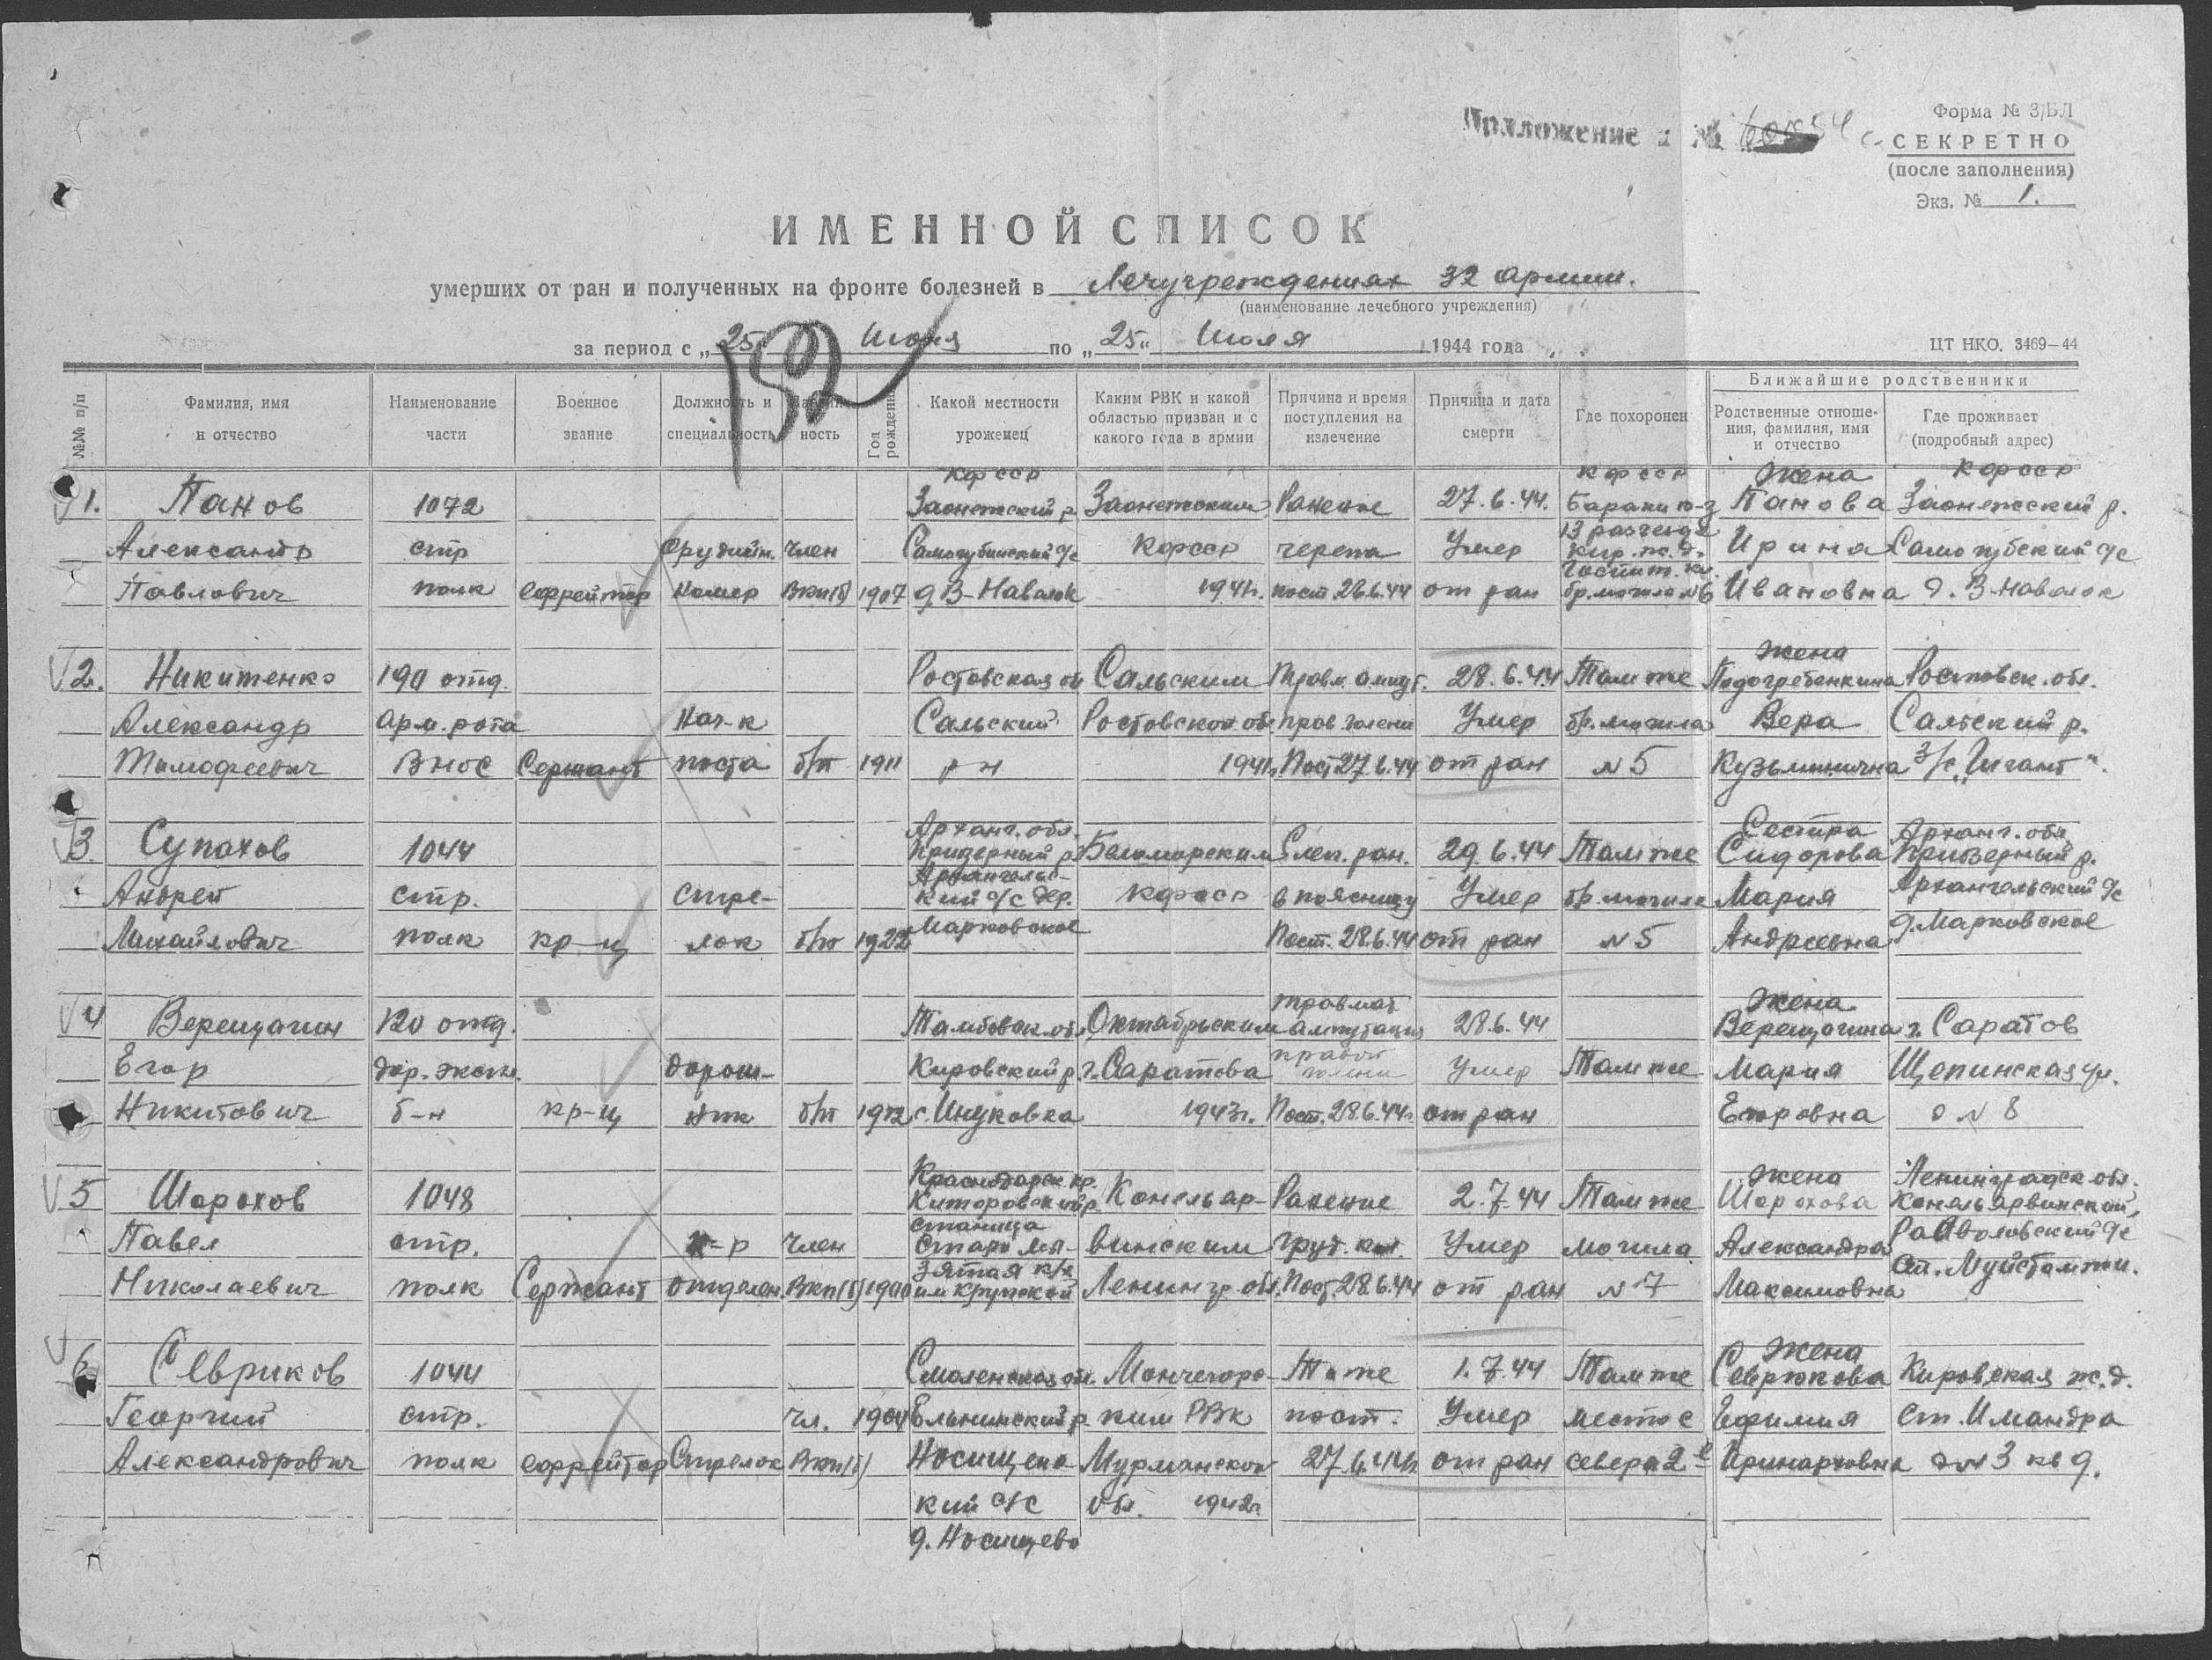 Приложение к №
Форма № 3/БЛ
СЕКРЕТНО
(после заполнения)
Экз. № 1.
ИМЕННОЙ СПИСОК
умерших от ран и полученных на фронте болезней в Лечучреждениях 32 армии.
(наименование лечебного учреждения)
за период с „25" Июня по „25" Июля 1944 года
ЦТ НКО. 3469—44
№№ п/п
Фамилия, имя и отчество
Наименование части
Военное звание
Должность и специальность
Год рождения
Какой местности уроженец
Каким РВК и какой областью призван и с какого года в армии
Причина и время поступления на излечение
Причина и дата смерти
Где похоронен
Ближайшие родственники
Родственные отношения, фамилия, имя и отчество
Где проживает (подробный адрес)
КФССР КФССР Жена КФССР
1. Панов 1072 Заонежский р. Заонежским Ранение 27.6.44. Бараки ю-з Панова Заонежский р.
Александр стр Орудийн. член Самогубинский с/с КФССР черепа Умер 13 разъезда Кир. ж.д. Ирина Самогубский с/с
Павлович полк ефрейтор номер ВКП(б) 1907 д В-Наволок 1941г. пост 26.6.44 от ран бр. могила №6 Ивановна д. В-Наволок
Жена
2. Никитенко 190 отд. Ростовская об Сальским Травм. ампут. 28.6.44 Там же Подогребенкина Ростовск. обл.
Александр арм. рота Нач-к Сальский Ростовской обл. прав. голени Умер бр. могила Вера Сальский р.
Тимофеевич ВНОС Сержант поста б/п 1911 р-н 1941г. Пост 27.6.44 от ран №5 Кузьминична з/с „Гигант".
Арханг. обл. Сестра Арханг. обл
3. Супахов 1044 Приозерный р. Беломорским Слеп. ран. 29.6.44 Там же Сидорова Приозерный р.
Андрей стр. Стре- Архангельс- кий с/с дер. КФССР в поясницу Умер бр. могила Мария Архангельский с/с
Михайлович полк кр-ц лок б/п 1922 Марковское Пост. 28.6.44 от ран №5 Андреевна д. Марковское
травмат Жена
4 Верещагин 120 отд. Тамбовск. обл. Октябрьским ампутация 28.6.44 Верещагина г. Саратов
Егор дор. экспл. Дорож- Кировский р. г. Саратова правой голени Умер Там же Мария Щепинская ул.
Никитович б-н кр-ц ник б/п с. Инуковка 1943г. Пост. 28.6.44г. от ран Егоровна д №8
Краснодарск. кр. Жена Ленинградск. обл.
5 Шорохов 1048 р. Кексьгар- Ранение 2.7.44 Там же Шорохова
Павел стр. к-р член станица Старо Мы- винским груд. кл. Умер могила Александра Раволовский с/с
Николаевич полк Сержант отделен. ВКП(б) 1900 им Крупской Ленингр. обл. Пост. 28.6.44 от ран №7 Максимовна ст.
Жена
6 Севриков 1044 Смоленская обл. Мончегорс- То же 1.7.44 Там же Севрюкова Кировская ж.д.
Георгий стр. чл. 1904 Ельнинский р. ким РВК пост. Умер место с Ефимия ст. Имандра
Александрович полк ефрейтор Стрелок ВКП(б) Носищенс Мурманской 27.6.44г. от ран севера 2-е Иринарховна д №3 кв 9.
кий с/с обл. 1942г.
д. Носищево